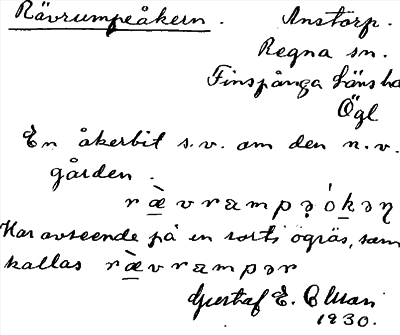 Rävrumpeåkern. Anstorp.
Regna sn.
Finspånga länsha
Ögl
En åkerbit s.v. om den n.v.
gården.
ræ̀vrampəókəɳ
Har avseende på en sorts ogräs, som
kallas ræ̀vrampər
Gustaf E. Olsson
1930.